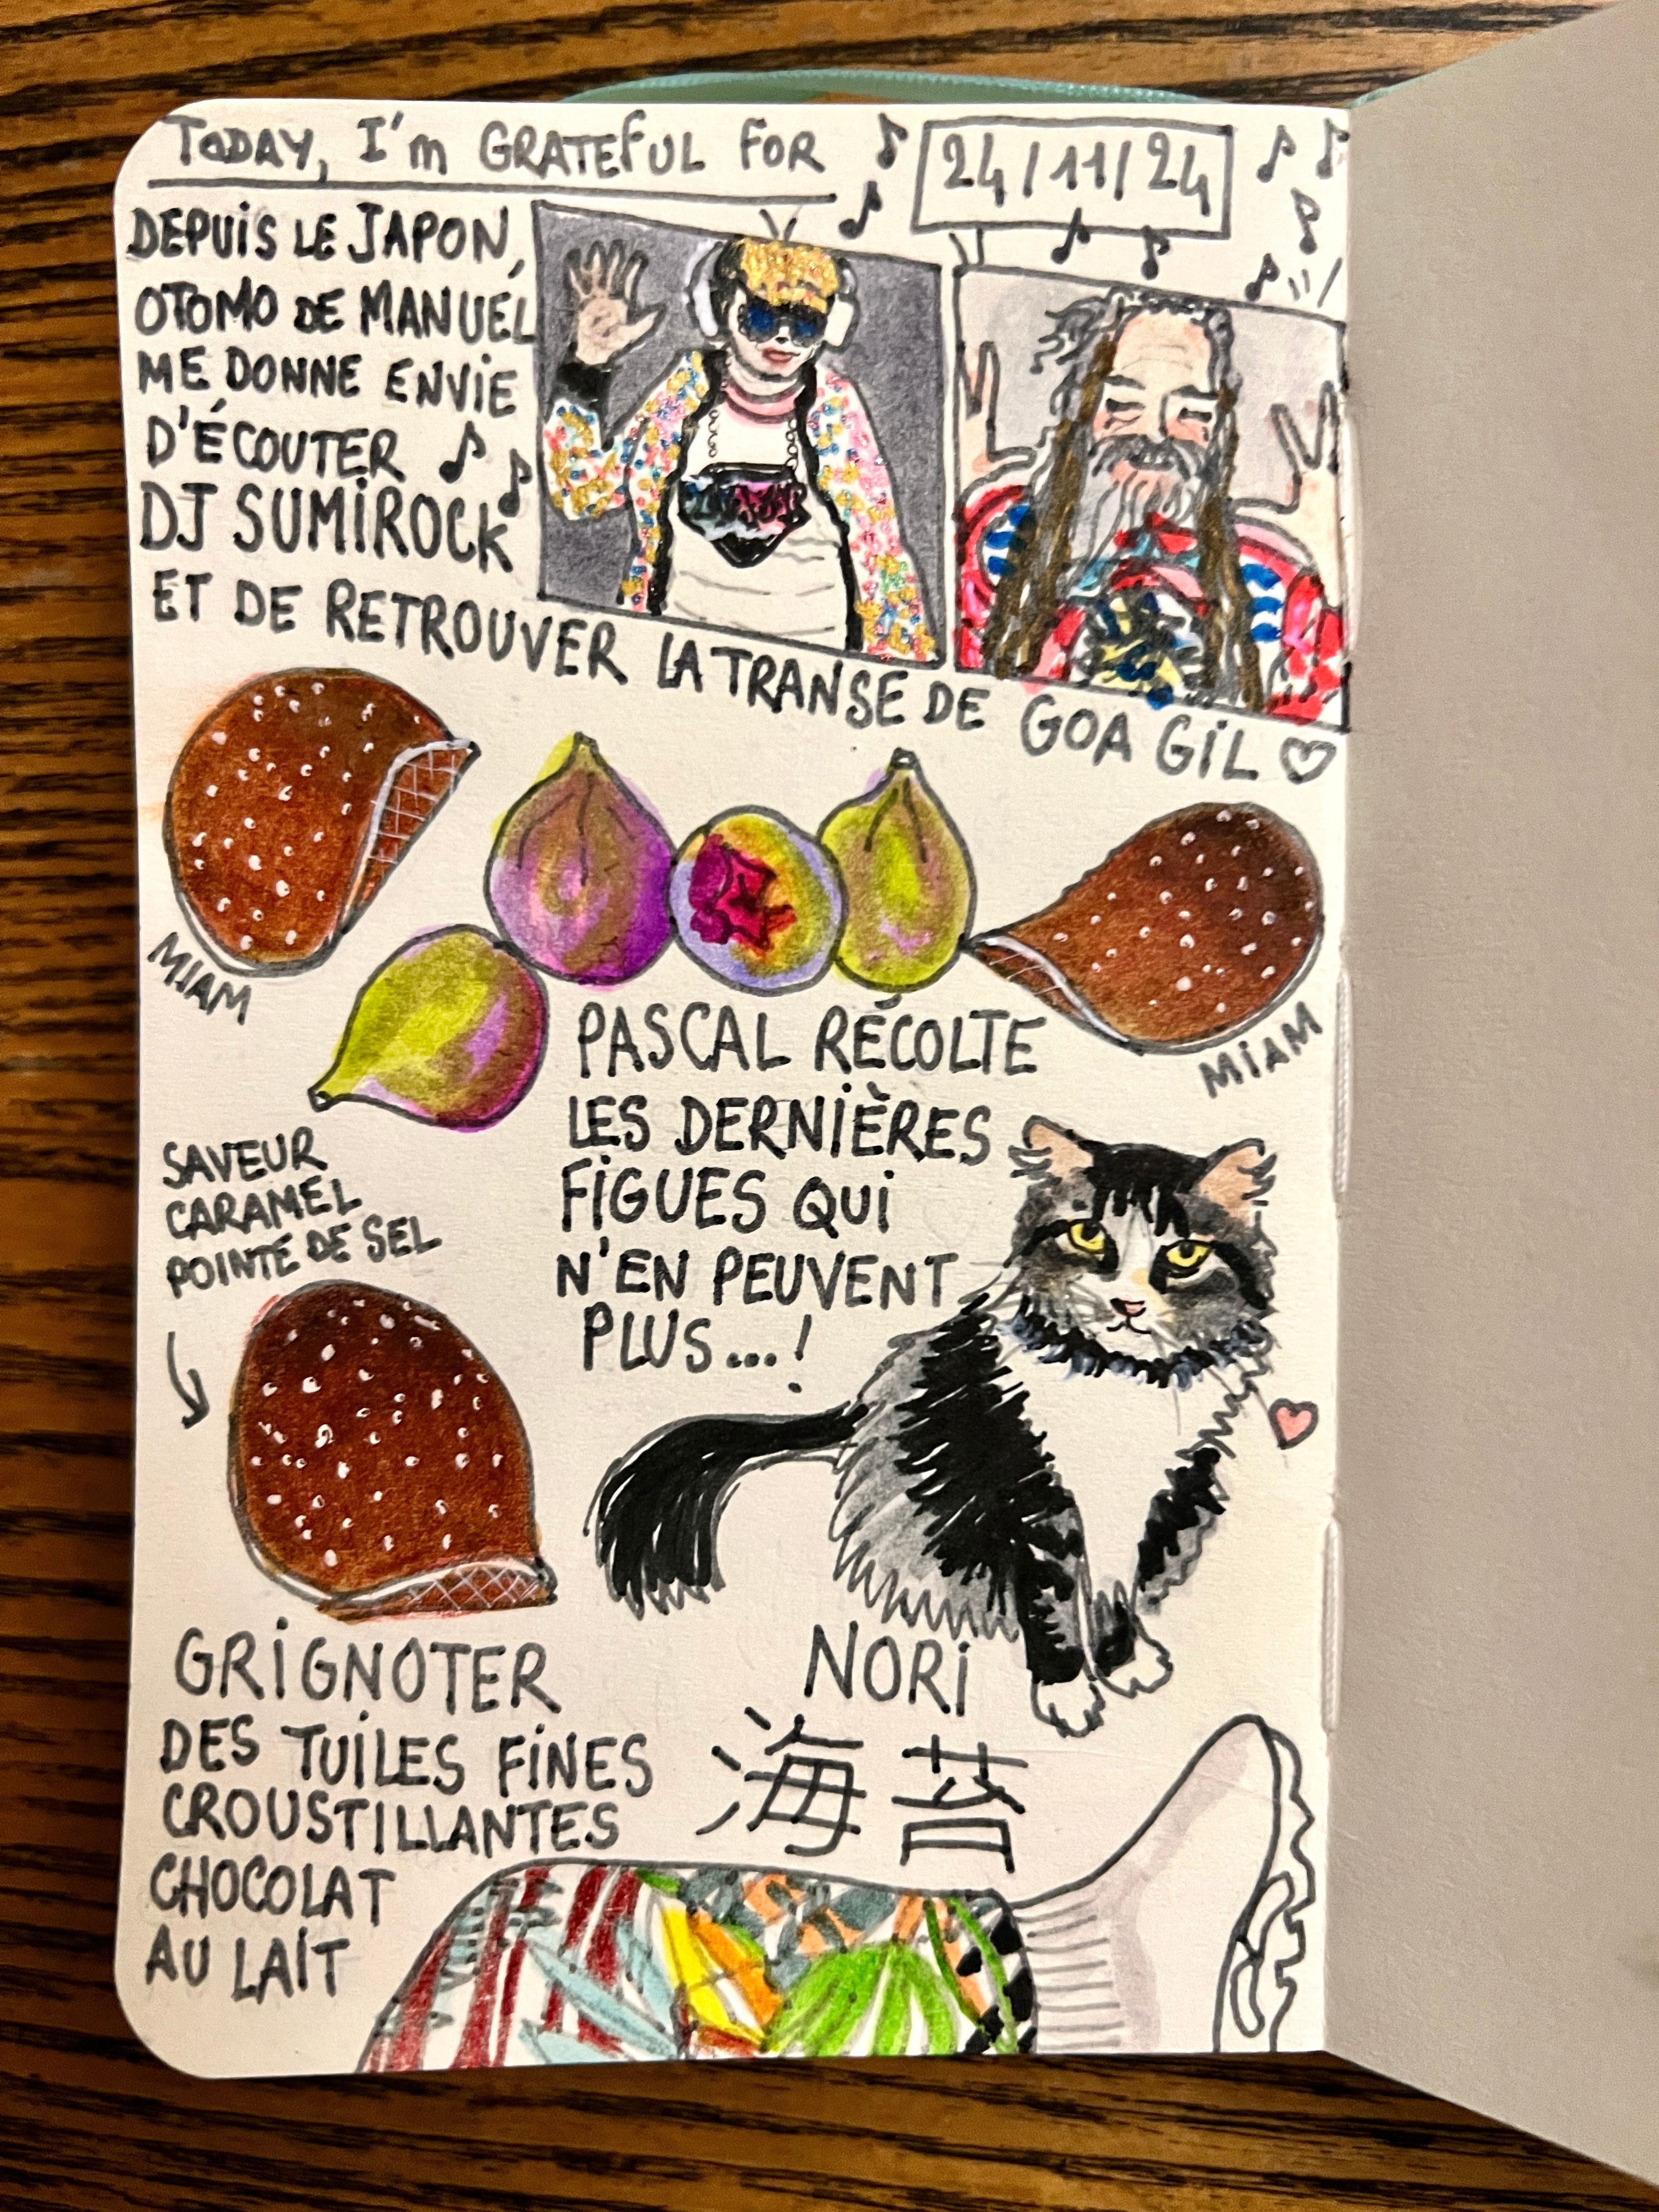 TODAY, I'm GRATEFUL FOR
24/11/24
DEPUIS LE JAPON,
OTOMO DE MANUEL
ME DONNE ENVIE
D'ÉCOUTER
DJ SUMIROCK
ET DE RETROUVER LA TRANSE DE GOA GIL
MIAM
MIAM
PASCAL RÉCOLTE
LES DERNIÈRES
FIGUES QUI
N'EN PEUVENT
PLUS...!
SAVEUR
CARAMEL
POINTE DE SEL
GRIGNOTER
DES TUILES FINES
CROUSTILLANTES
CHOCOLAT
AU LAIT
NORI
海苔